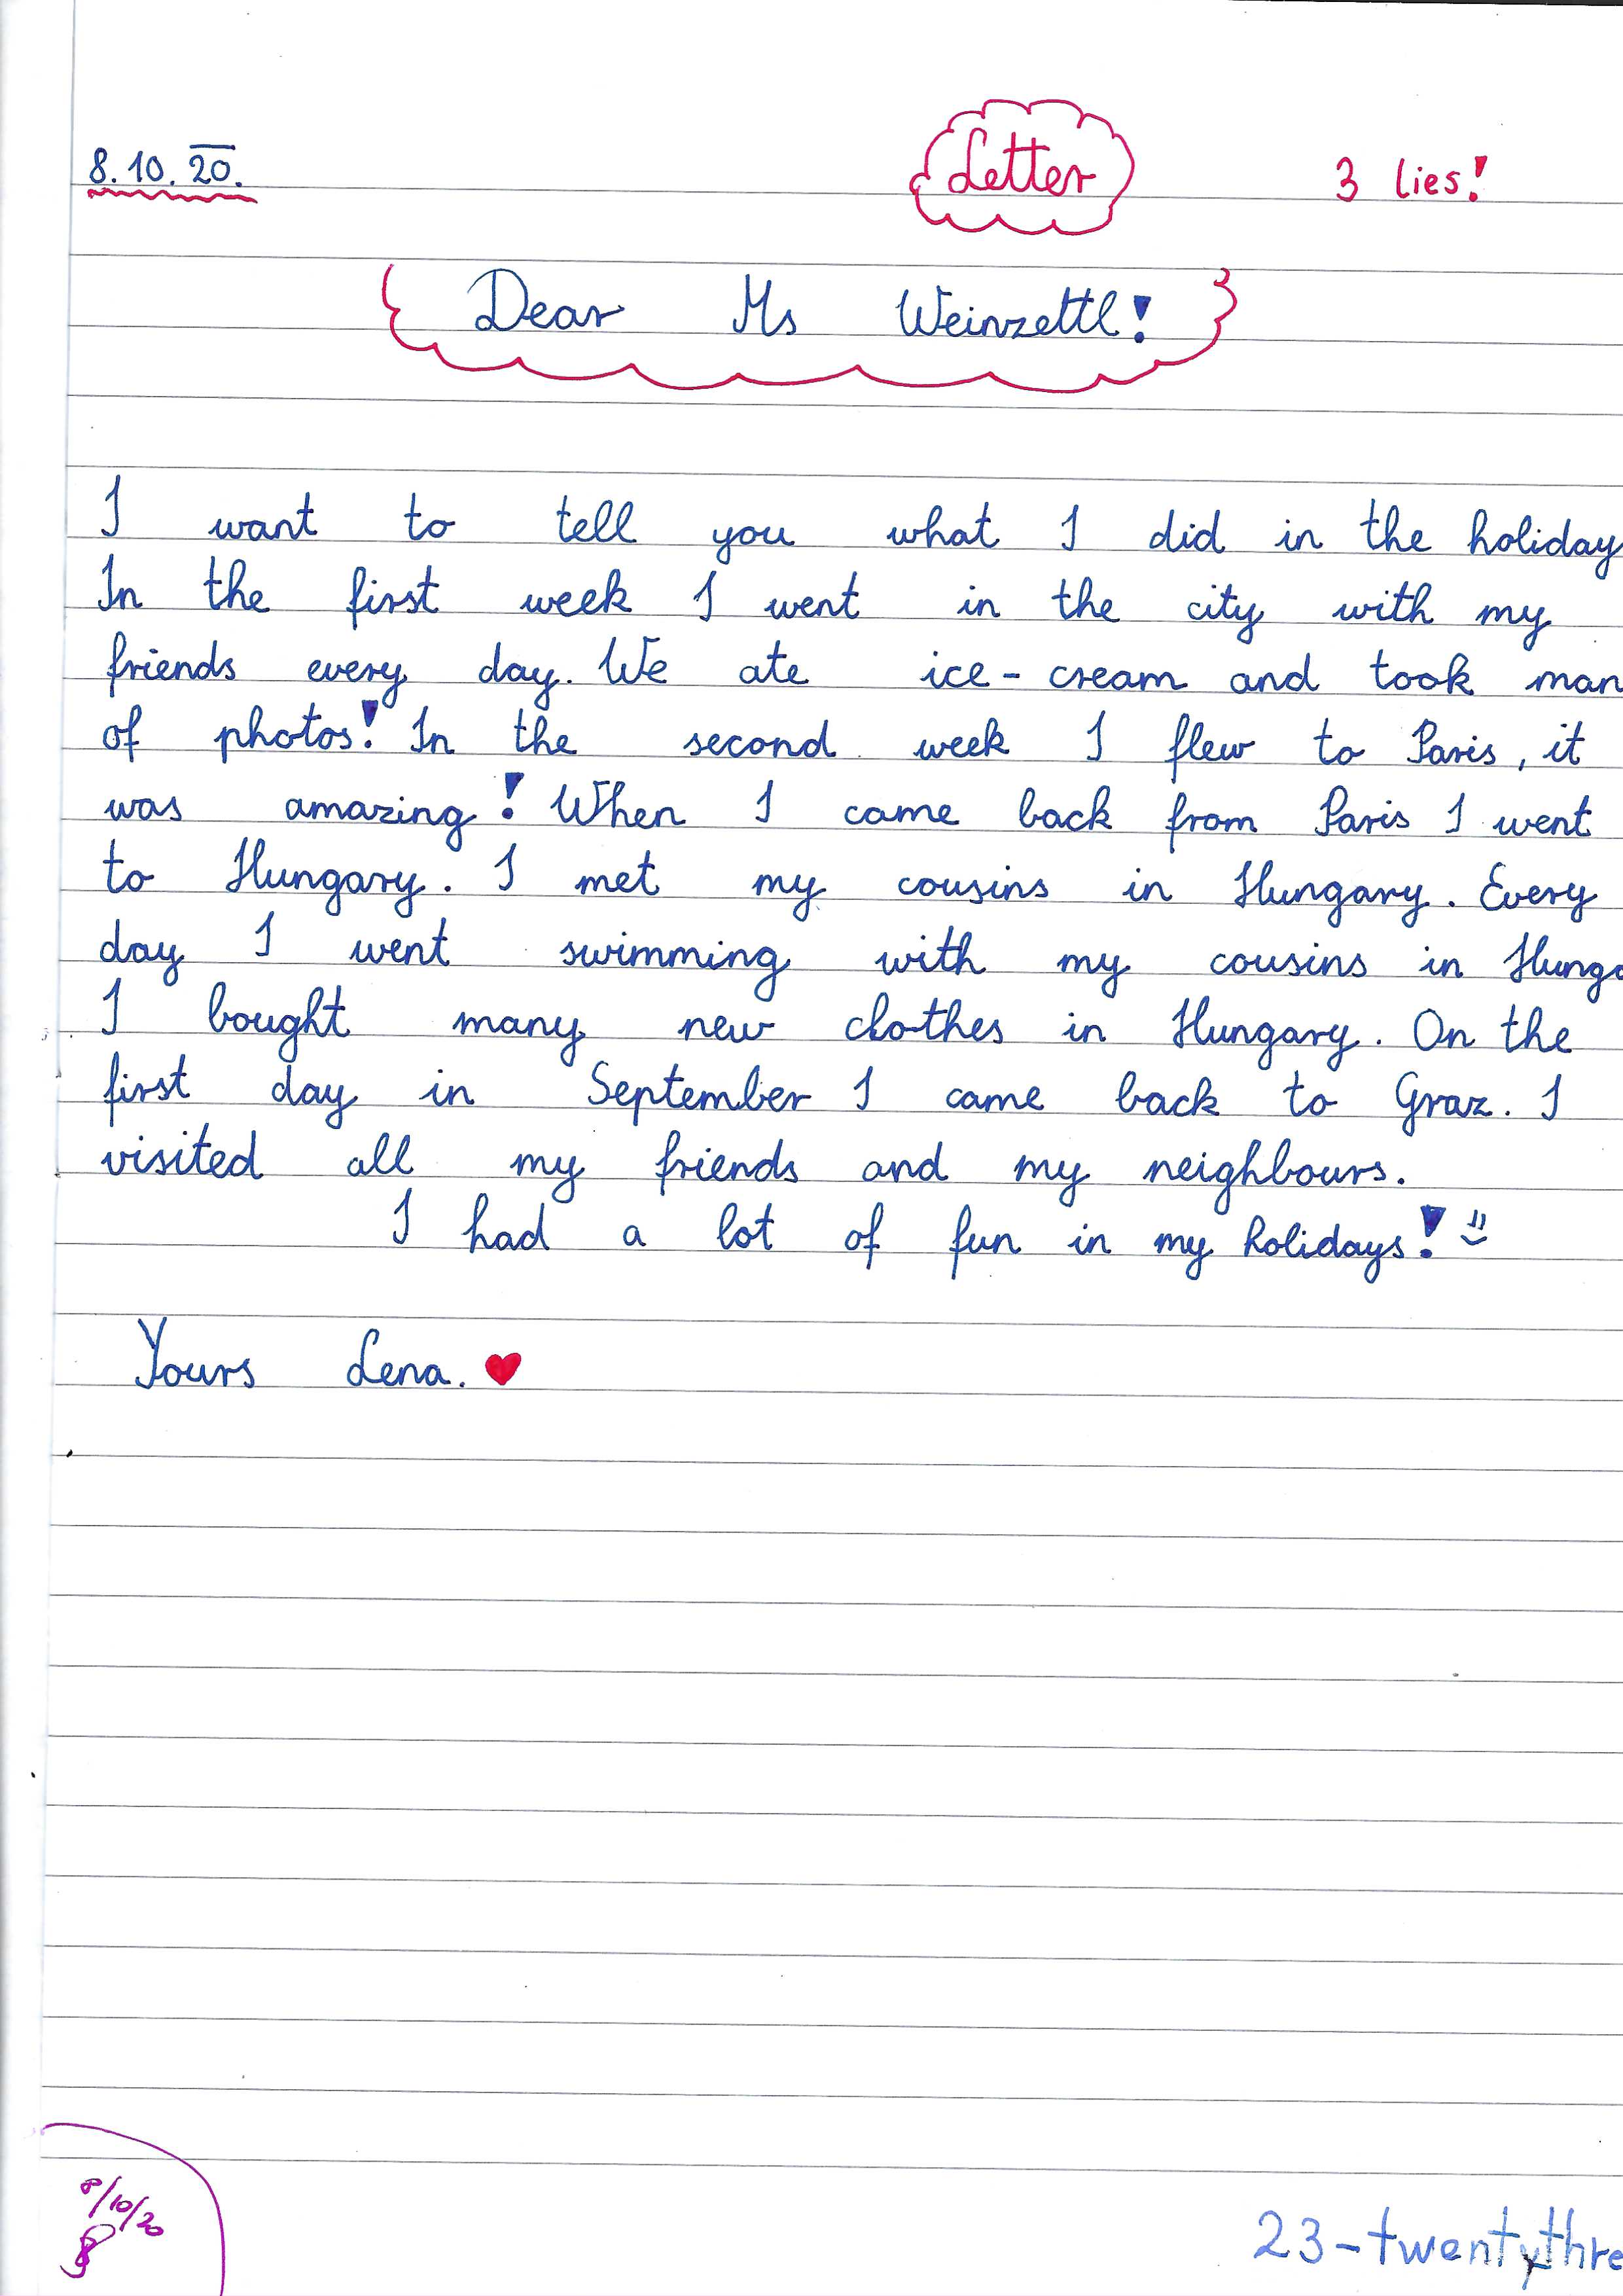 8.10.20.
Letter
3 lies!
Dear Ms Weinzettl!
I want to tell you what I did in the holiday
In the first week I went in the city with my
friends every day. We ate ice-cream and took man
of photos! In the second week I flew to Paris, it
was amazing! When I came back from Paris I went
to Hungary. I met my cousins in Hungary. Every
day I went swimming with my cousins in Hunga
I bought many new clothes in Hungary. On the
first day in September I came back to Graz. I
visited all my friends and my neighbours.
I had a lot of fun in my holidays!
Yours Lena.
8/10/20
23-twentythre